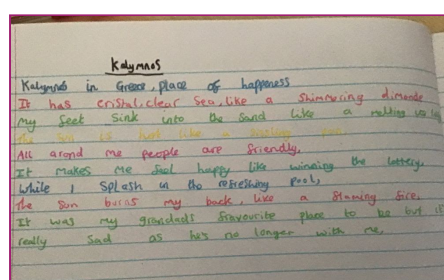 Kalymnos
Kalymnos in Greece, place of happness
It has cristal, clear sea, like a shimmering dimonde
My feet sink into the sand like a melting
The sun is hot like a
All arond me people are friendly.
It makes me feel happy like wininng the lottery.
While I splash in the refreshing pool,
The sun burns my back, like a flaming fire.
It was my grandads fravourite place to be but
really sad as he's no longer with me.